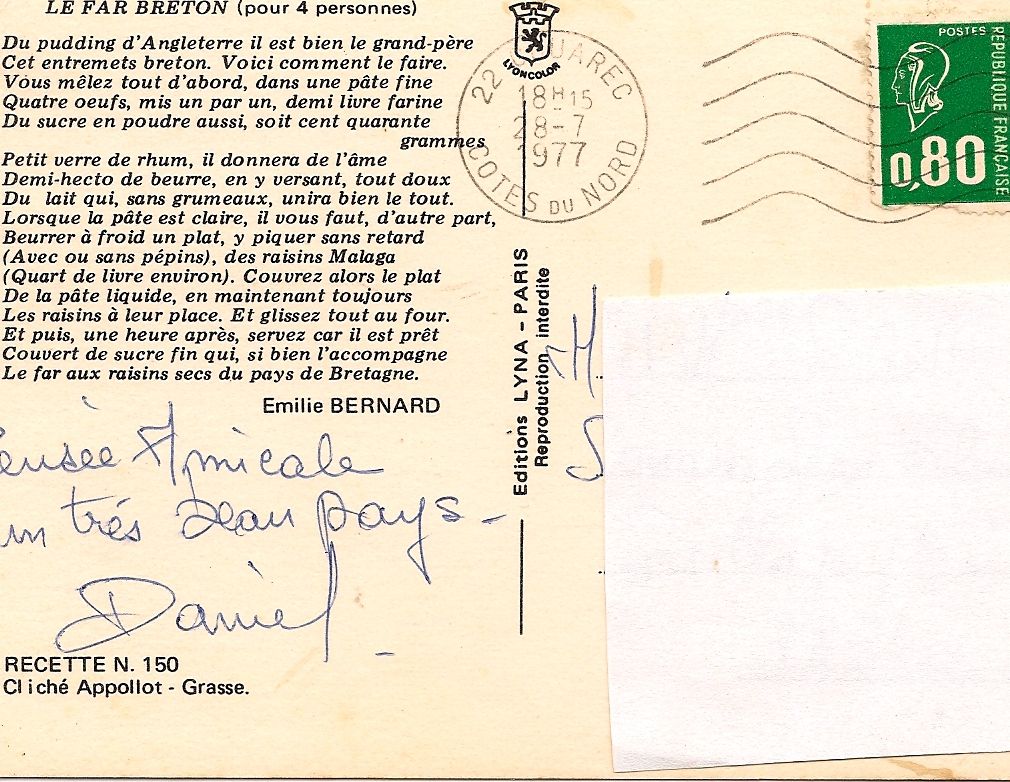 LE FAR BRETON (pour 4 personnes)
Du pudding d'Angleterre il est bien le grand-père
Cet entremets breton. Voici comment le faire.
Vous mêlez tout d'abord, dans une pâte fine
Quatre oeufs, mis un par un, demi livre farine
Du sucre en poudre aussi, soit cent quarante
grammes
Petit verre de rhum, il donnera de l'âme
Demi-hecto de beurre, en y versant, tout doux
Du lait qui, sans grumeaux, unira bien le tout.
Lorsque la pâte est claire, il vous faut, d'autre part,
Beurrer à froid un plat, y piquer sans retard
(Avec ou sans pépins), des raisins Malaga
(Quart de livre environ). Couvrez alors le plat
De la pâte liquide, en maintenant toujours
Les raisins à leur place. Et glissez tout au four.
Et puis, une heure après, servez car il est prêt
Couvert de sucre fin qui, si bien l'accompagne
Le far aux raisins secs du pays de Bretagne.
Emilie BERNARD
ensée Amicale
un très beau pays -
Daniel
RECETTE N. 150
Cliché Appollot - Grasse.
LYONCOLOR
22 GOUAREC
18H15
28-7
1977
COTES DU NORD
Editions LYNA - PARIS
Reproduction interdite
POSTES
REPUBLIQUE FRANÇAISE
0,80
H
S